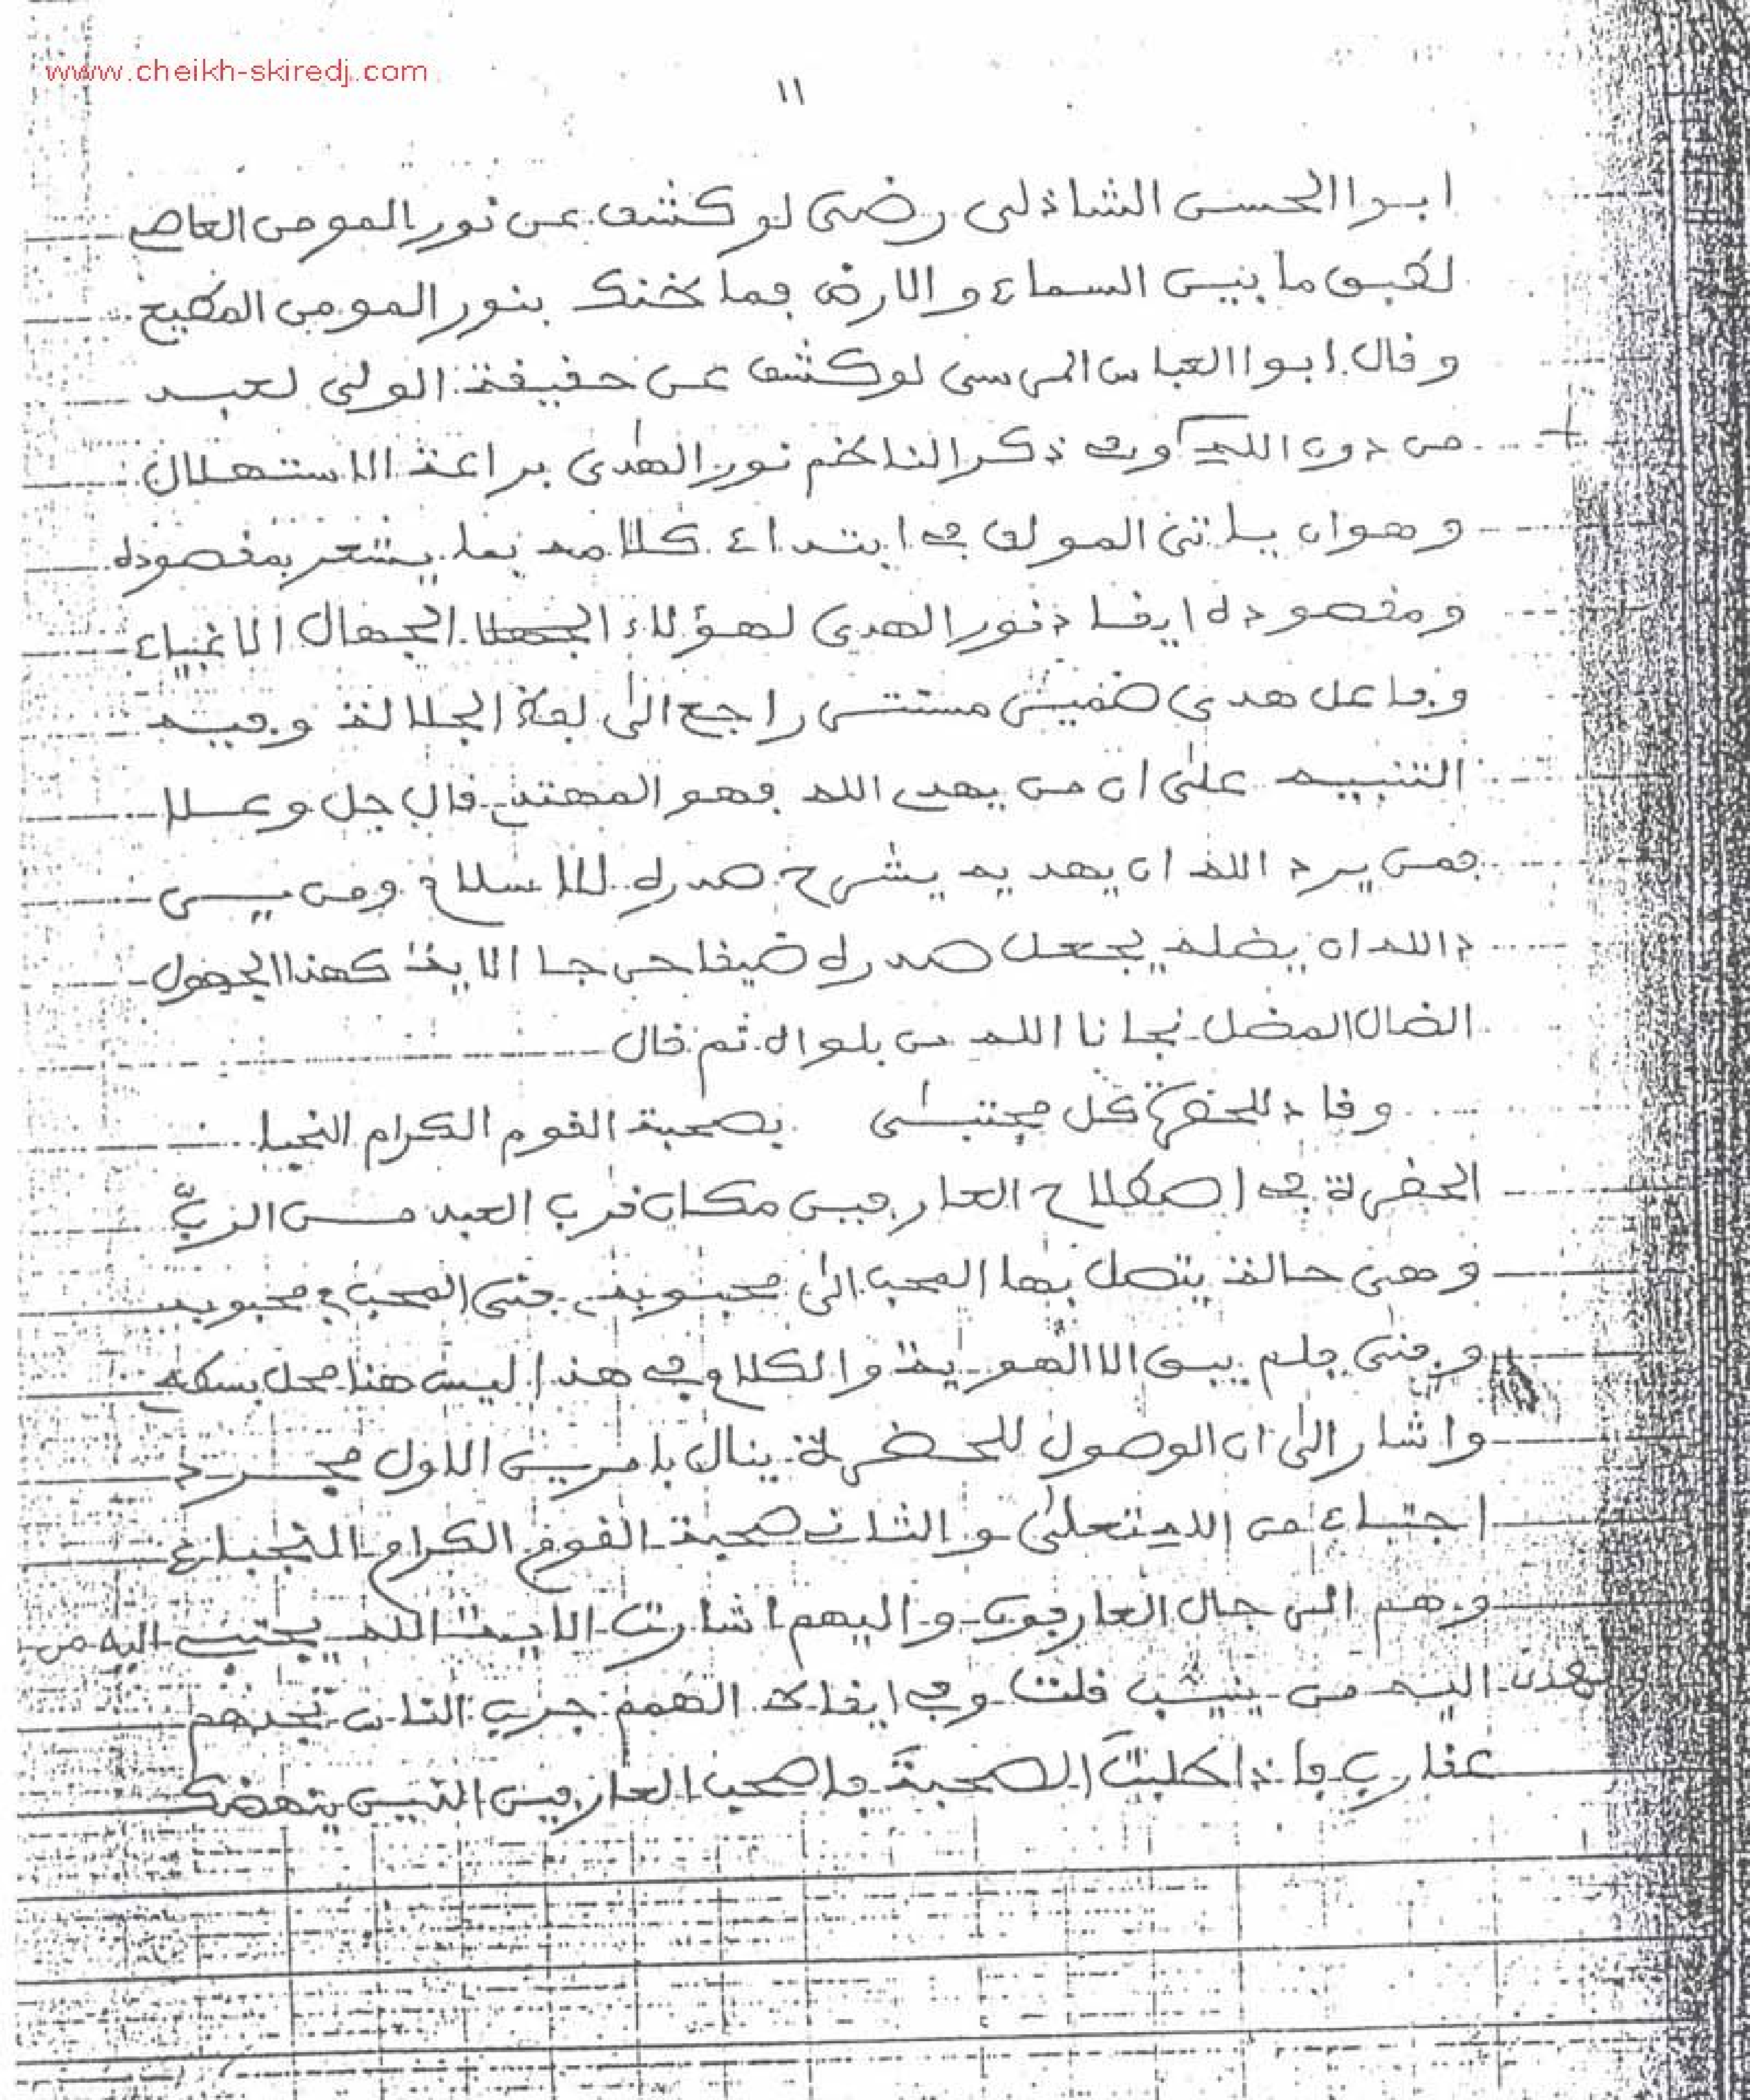 www.cheikh-skiredj.com
١١
ابوا الحسن الشاذلى رضى لو كشف عن نور المومن العاص
لطبق ما بين السماء والارض فما ظنك بنور المومن المطيع
وقال ابوا العباس المرسى لو كشف عن حقيقة الولى لعبد
من دون الله وفى ذكر الناظم نور الهدى براعة الاستهلال
وهو ان ياتى المولف فى ابتداء كلامه بما يشعر بمقصوده
ومقصوده ايقاد نور الهدى لهؤلاء الجهال الاغبياء
وفاعل هدى ضمير مستتر راجع الى لفظ الجلالة وفيه
التنبيه على ان من يهد الله فهو المهتد قال جل وعلا
فمن يرد الله ان يهديه يشرح صدره للاسلام ومن ير
د الله ان يضله يجعل صدره ضيقا حرجا الاية كهذا الجهول
الضال المضل نجانا الله من بلواه ثم قال
وقاد للحضرة كل مجتبى بصحبة القوم الكرام النجبا
الحضرة فى اصطلاح العارفين مكان قرب العبد من الربّ
وهى حالة يتصل بها المحب الى محبوبه فنى المحب فى محبوبه
وفنى فلم يبق الا الهوية والكلام فى هذا ليس هنا محل بسطه
واشار الى ان الوصول للحضرة ينال بامرين الاول مجرد
اجتباء من الله تعلى والثان صحبة القوم الكرام النجباء
وهم الرجال العارفون واليهم اشارت الاية الله يجتبى اليه من
يهدى اليه من ينيب قلت وفى ايقاظ الهمم جرب الناس تجدهم
عقارب فاذا طلبت الصحبة فاصحب العارفين الذين ينهضك